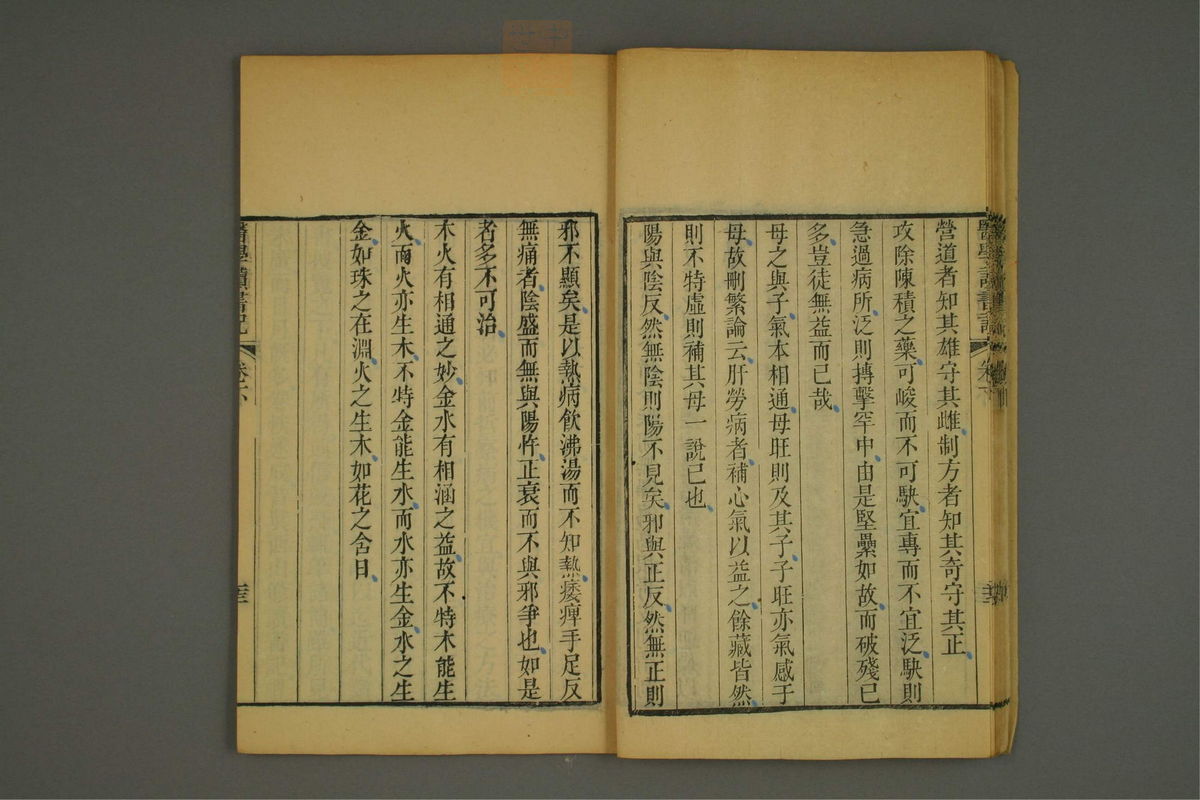 營道者知其雄守其雌制方者知其奇守其正
攻除陳積之藥可峻而不可駃宜專而不宜泛駃則
急過病所泛則搏擊罕中由是堅壘如故而破殘已
多豈徒無益而已哉
母之與子氣本相通母旺則及其子子旺亦氣感于
母故刪繁論云肝勞病者補心氣以益之餘藏皆然
則不特虛則補其母一說已也
陽與陰反然無陰則陽不見矣邪與正反然無正則
邪不顯矣是以熱病飲沸湯而不知熱痿痺手足反
無痛者陰盛而無與陽忤正衰而不與邪爭也如是
者多不可治
木火有相通之妙金水有相涵之益故不特木能生
火而火亦生木不特金能生水而水亦生金水之生
金如珠之在淵火之生木如花之含日
醫學讀書記 卷下